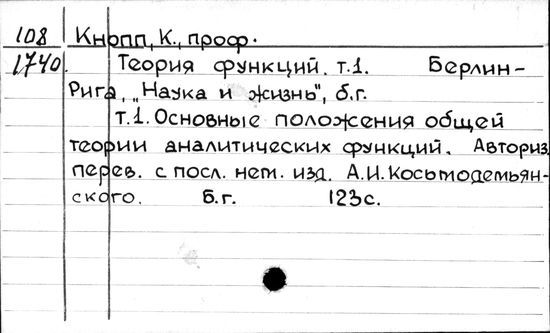 108 Кнопп, К., проф.
1740. Теория функций. т.1. Берлин-
Рига, „Наука и жизнь", б.г.
т.1. Основные положения общей
теории аналитических функций. Авториз.
перев. с посл. нем. изд. А.И.Косьмодемьян-
ского. Б.г. 123с.